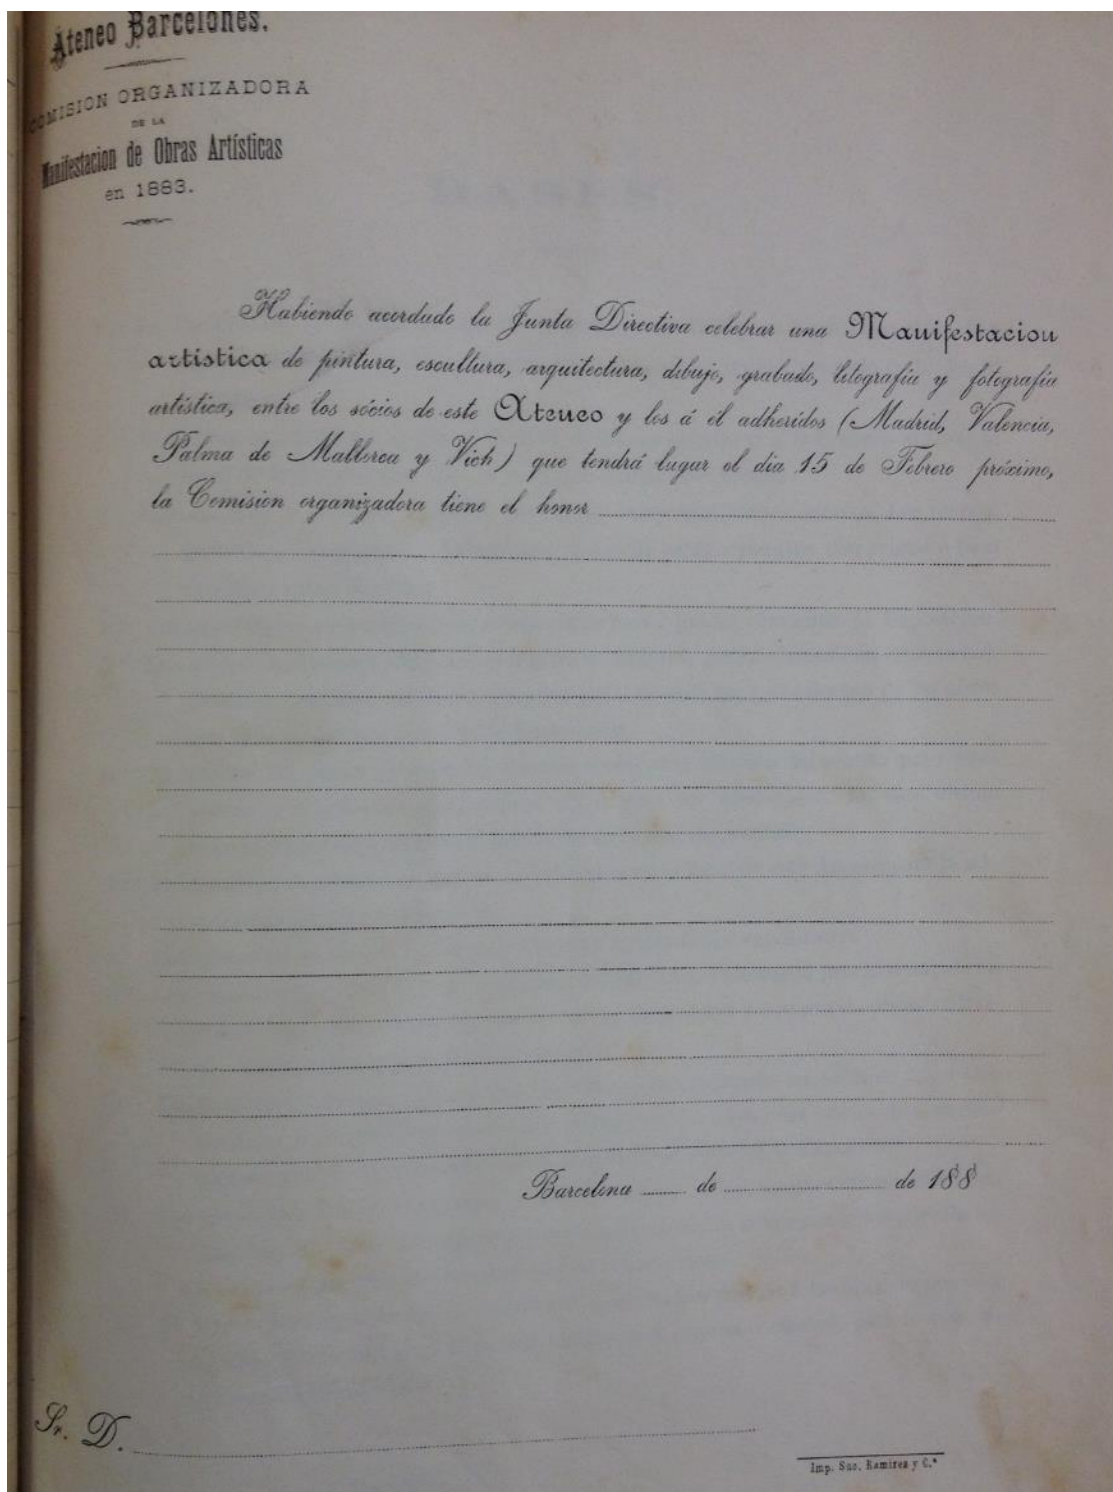 Ateneo Barcelonés.
COMISION ORGANIZADORA
DE LA
Manifestacion de Obras Artísticas
en 1883.
Habiendo acordado la Junta Directiva celebrar una Manifestacion
artística de pintura, escultura, arquitectura, dibujo, grabado, litografía y fotografía
artística, entre los sócios de este Ateneo y los á él adheridos (Madrid, Valencia,
Palma de Mallorca y Vich) que tendrá lugar el dia 15 de Febrero próximo,
la Comision organizadora tiene el honor
Barcelona de de 188
Sr. D.
Imp. Suc. Ramirez y C.ª